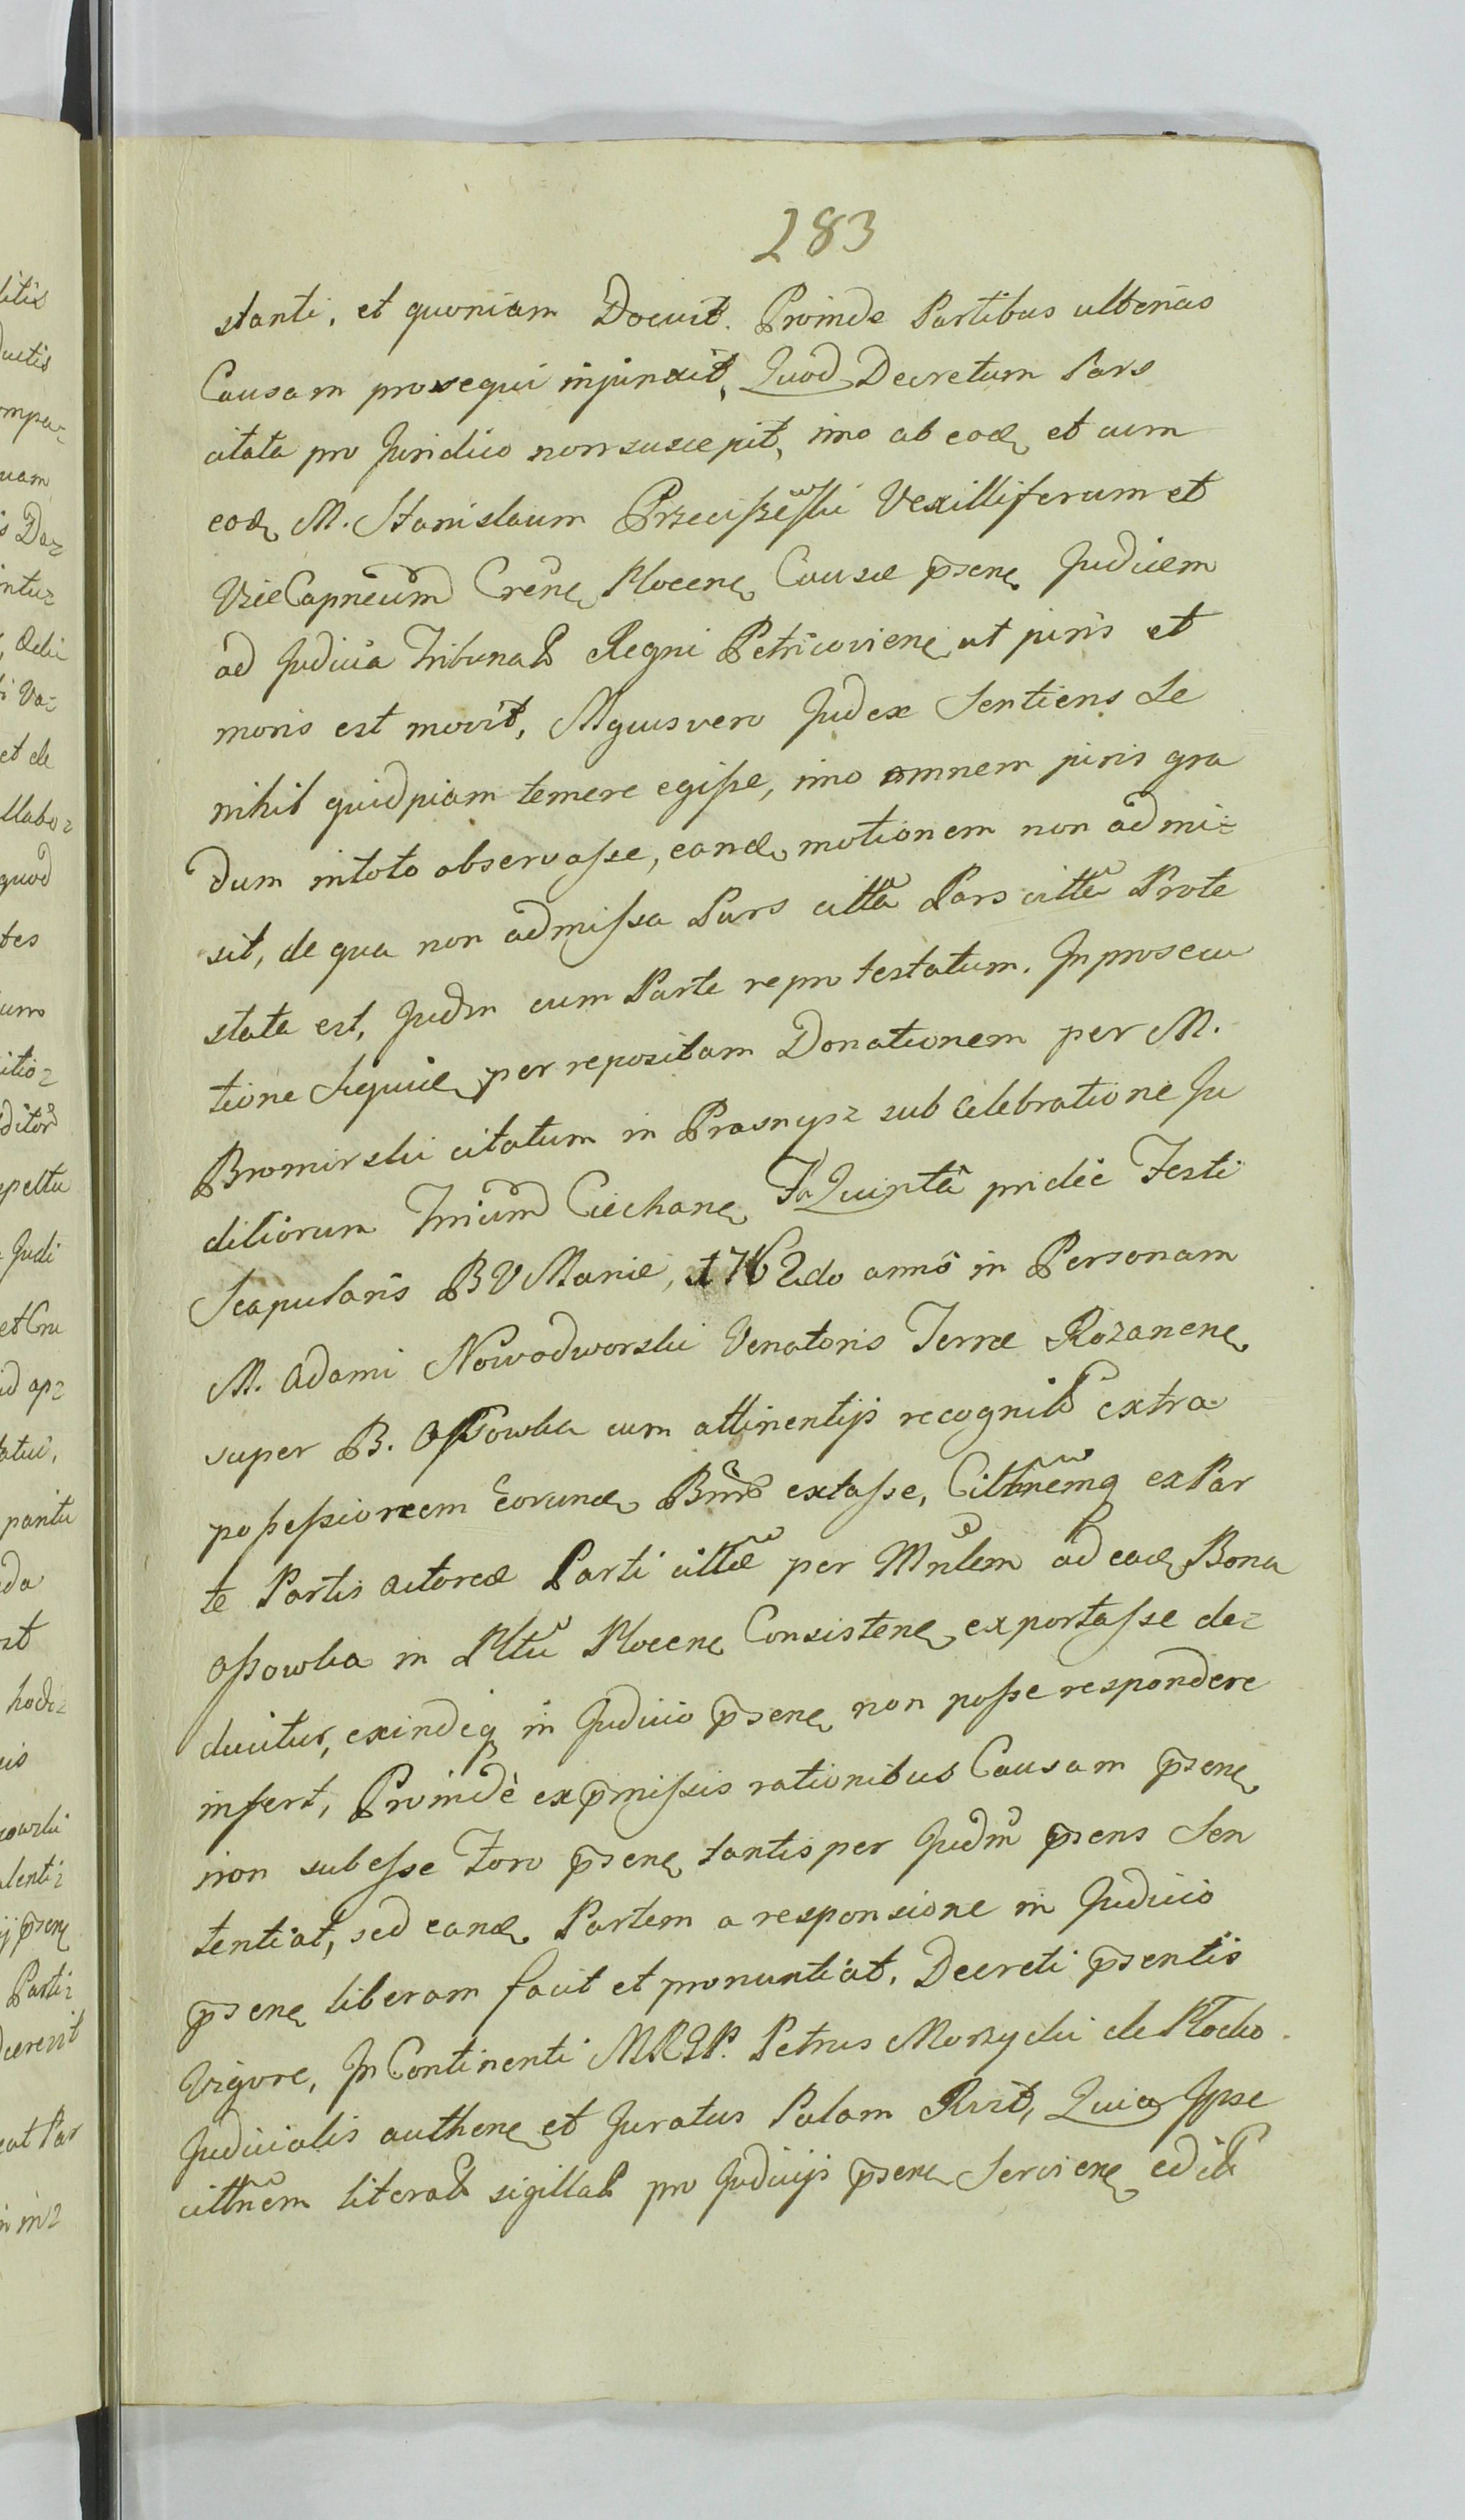 283
stanti, et quoniam Docuit. Proinde Partibus ulterius
Causam prosequi injunxit, Quod Decretum Pars
citata pro Juridico non suscepit, imo ab eod, et cum
eod, M. Stanislaum Przeciszewski Vexilliferum et
ViceCapneum Crenẽ Plocenẽ Causæ p̄senẽ Judicem
ad Judicia Tribunal Regni Petricovienẽ ut juris et
moris est movit, Mgcus vero Judex Sentiens Se
nihil quidpiam temere egisse, imo omnem juris gra
dum intoto observasse, eand, motionem non admi=
sit, de qua non admissa Pars citta Pars citta Prote
stata est, Judm cum Parte reprotestatum. In prosecu
tione Sequie, per repositam Donationem per M.
Bromirski citatum in Prasnysz sub celebratione Ju
diciorum Trium Ciechanẽ Fa Quinta pridie Festi
Scapularis B V Mariæ, 1762do anno in Personam
M. Adami Nowodworski Venatoris Terræ Rozanenẽ
super B. Ossowka cum attinentijs recognit extra
possessionem Eorund, Bnr extasse, Cittnemq ex Par
te Partis Actoreæ Parti cittæ per Mnlem ad ead, Bona
Ossowka in Pltu Plocenẽ Consistenẽ exportasse de=
ducitur, exindeq in Judicio p̄senẽ non posse respondere
infert, Proindè ex p̄missis rationibus Causam p̄senẽ
non subesse Foro p̄senẽ tantisper Judm p̄sens Sen
tentiat, sed eand, Partem a responsione in Judicio
p̄senẽ liberam facit et pronuntiat. Decreti p̄sentis
Vigore, In Continenti MRSP. Petrus Morzycki de Plocko
Judicialis authenẽ et Juratus Palam Rvit, Quia Ipse
cittnem literal sigillat pro Judicijs p̄senẽ Servienẽ edit